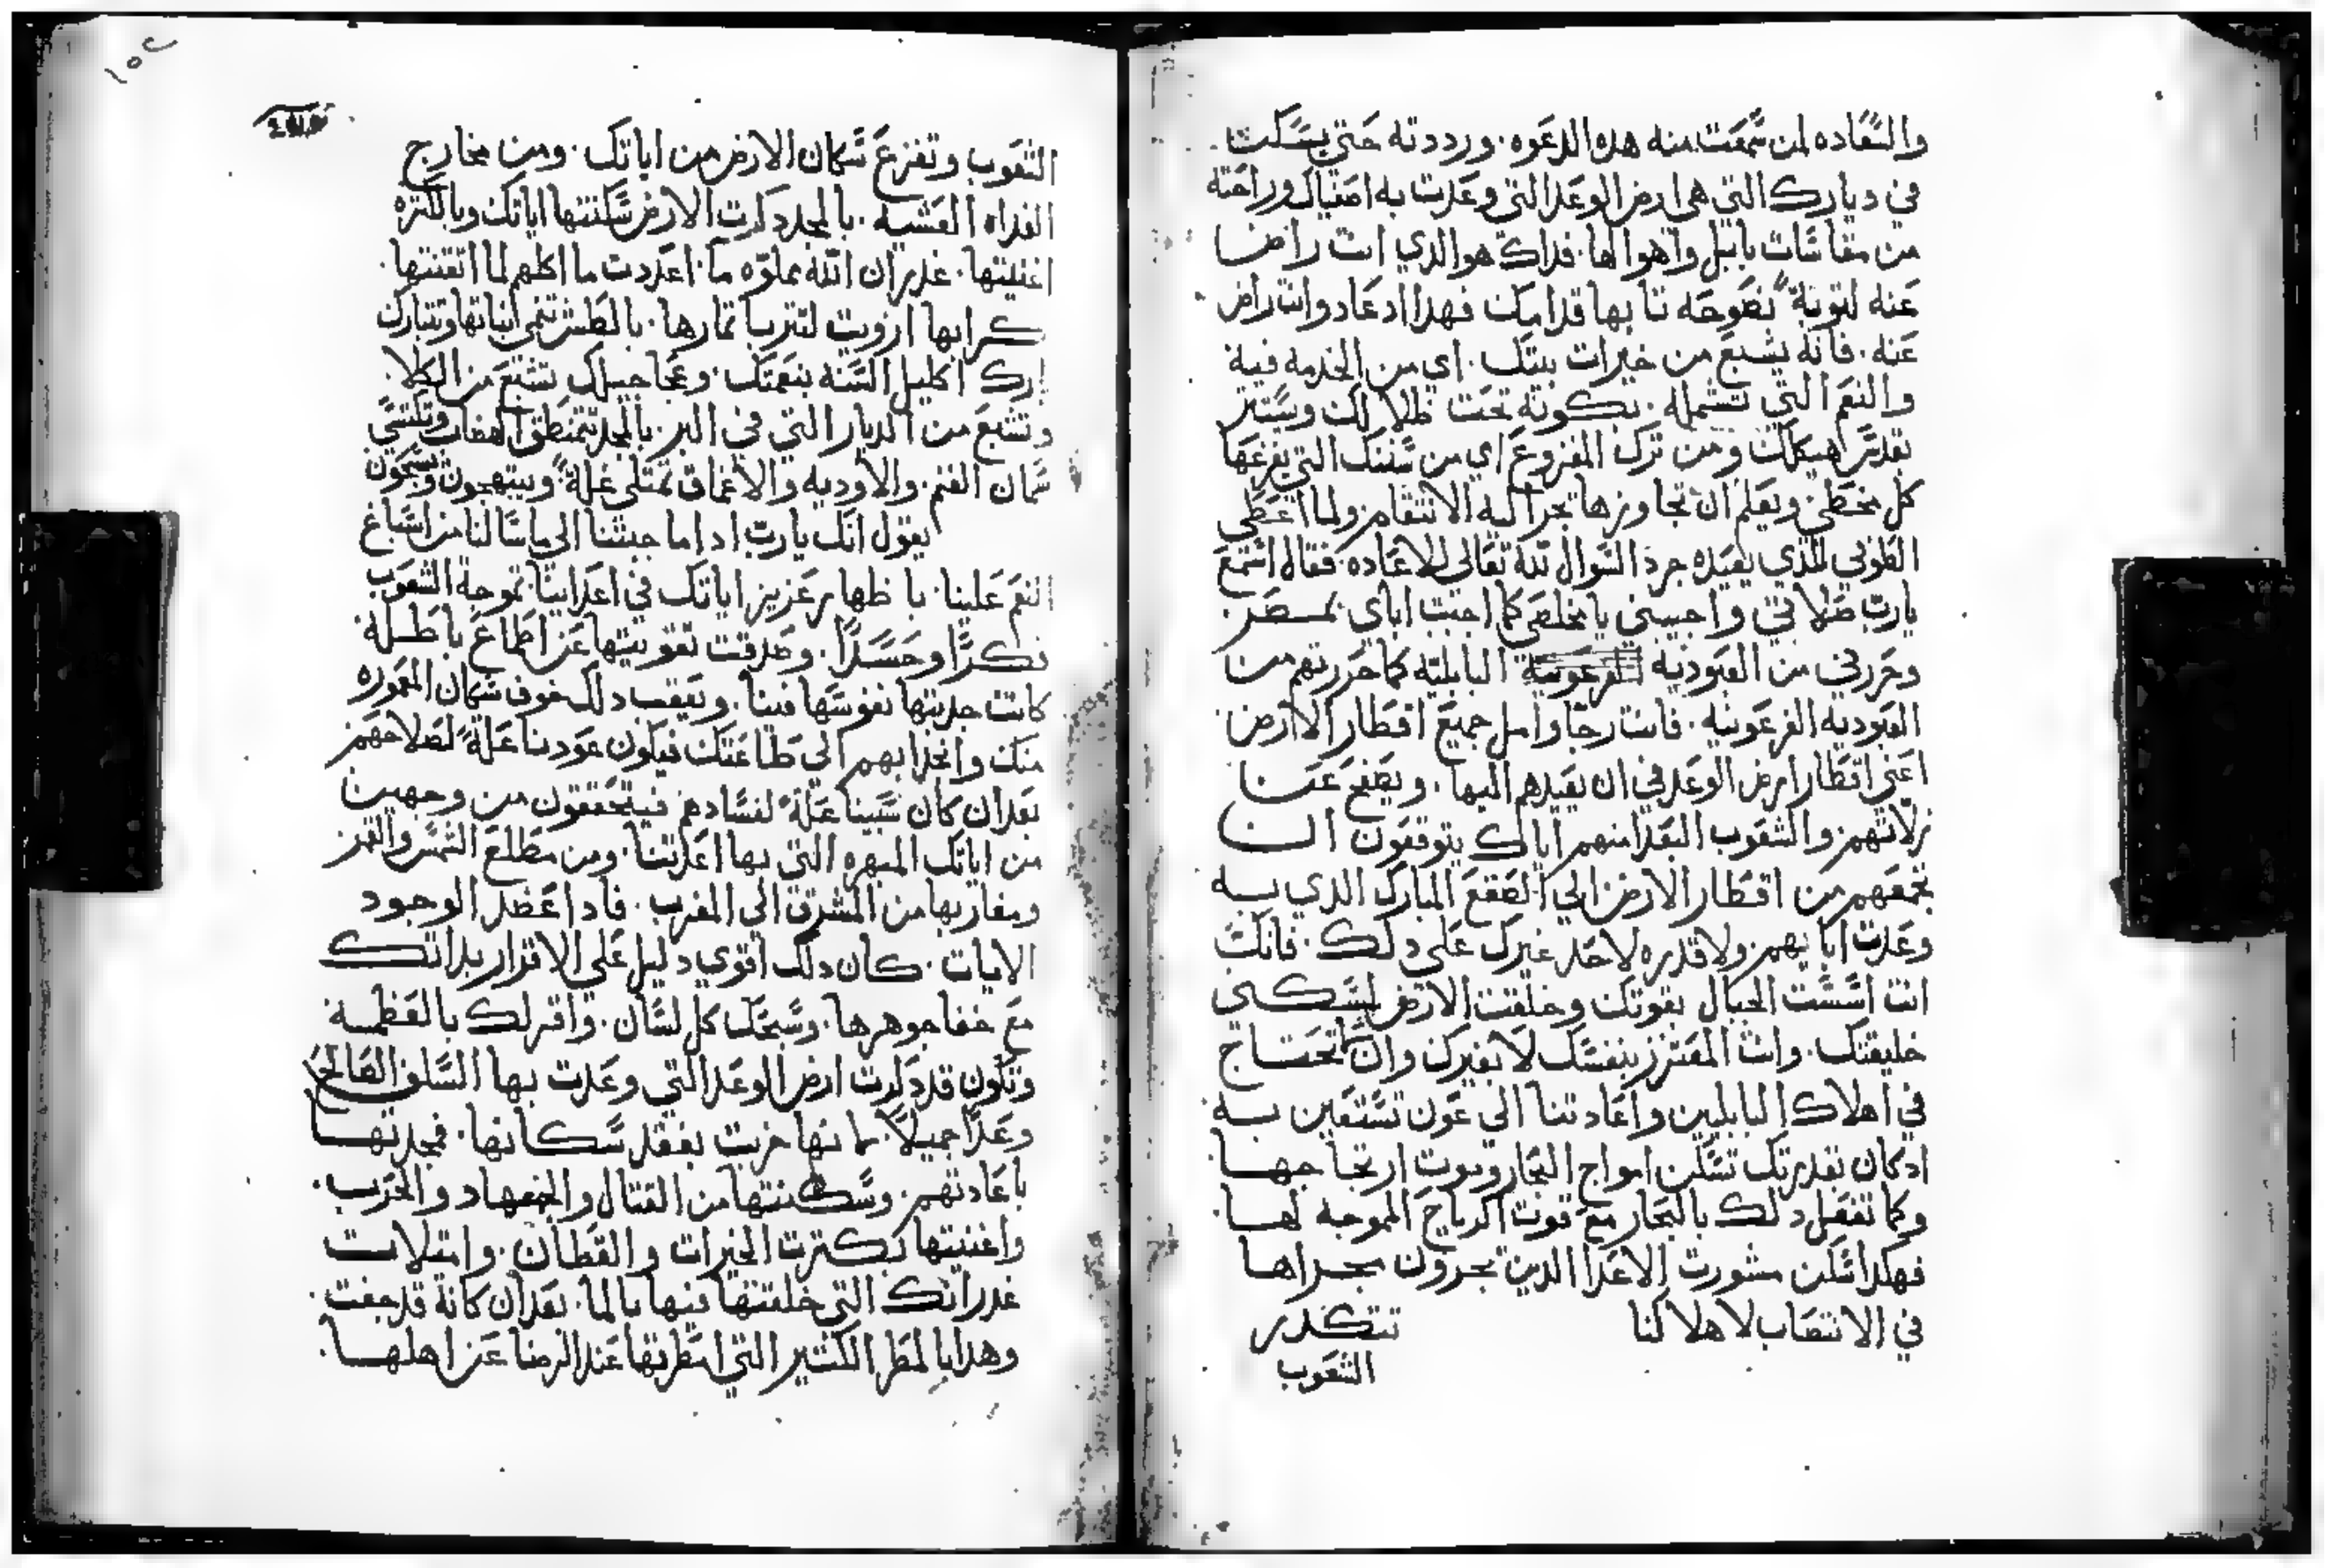 والسعاده لمن سمعت منه هده الدعوه. ورددته حتي يسكت
في ديارك التي هي ارض الوعد التي وعدت به اصفياك وراحته
من مقاسات بابل واهوالها. فداك هو الدي انت راضا
عنه لتوبة نصوحه تا بها قدامك فهدا ادعاد وانت راض
عنه. فانه يشبع من خيرات بيتك. اي من الخدمه فيه
والنعم التي تشمله. بكونه تحت ظلالك وستر
تقدس هيكلك ومن ترك المفزوع اي من سننك التي يفزعها
كل مخطي ويعلم ان تجاوزها تجر اليه الانتقام ولما اعطي
القوني للدي يعيده جرد السوال لله تعالي للاعاده فقال استمع
يارب صلاتي واجيبني يا مخلصي كما اجبت اباي بمصر.
وحررني من العبوديه الفرعونية البابليه كما حررتهم من
العبوديه الفرعونيه. فانت رجا وامل جميع اقطار الارض
اعني اقطار ارض الوعد في ان يعيدهم اليها. ويصفح عن
زلاتهم والشعوب البعدا منهم اياك يتوقعون ان
تجمعهم من اقطار الارض الي الصقع المبارك الدي به
وعدت ابايهم ولا قدره لاحد غيرك علي دلك. فانك
انت اسست الجبال بقوتك وخلقت الارض لسكني
خليقتك. وانت المعتزز بنفسك لا بغيرك وان تحتاج
في اهلاك البابلين واعادتنا الي عون تستعين به
ادكان بقدرتك تسكن امواج البحار وبوت ارتجاجها
وكما تفعل دلك بالبحار مع قوت الرياح المموجه لها.
فهكدا سكن مشورت الاعدا الدين يجرون مجراها
في الانتصاب لاهلاكنا تتكدر
الشعوب
الشعوب وتفزع سكان الارض من اياتك. ومن مخارج
الغداه العشيه. بالمجد دكرت الارض سكنتها اياتك وبالكتره
اغنيتها. غدران الله مملوه ما. اعددت ماكلهم لما اتقنتها.
كرابها ارويت لتربا تمارها. بالطش تنمي انباتها وتتبارك
ارك اكليل السنه بنعمتك. وعجاجيلك تشبع من الكلا
وتشبع من الديار التي في البر. بالمجد تتمنطق الهضاب وتكتسي
سمان الغنم. والاوديه والاعماق تمتلي غلة ويبتهجون ويسبحون
يقول انك يارب ادا ما جيتنا الي ما سالنا من اسباغ
النعم علينا. باظهار عزيز اياتك في اعداينا تموجة الشعوب
نكرا وحسدا. وصدقت تقويتها عن اطماع باطله
كانت حدثتها نفوسها فينا. ويعقب دلك خوف سكان المعموره
منك وانجدابهم الي طاعتك فيكون عودنا علة لصلاحهم
بعد ان كان سبينا علة لفسادهم فيتحققون من وجهين
من اياتك المبهره التي بها اعدتنا. ومن مطلع الشمس والقمر
ومغاربها من المشرق الي المغرب. فادا عضد الوجود
الايات. كان دلك اقوي دليل علي الاقرار بداتك
مع خفا جوهرها. وسبحك كل لسان. واقر لك بالعظمه
وتكون قد دكرت ارض الوعد التي وعدت بها السلف الصالح
وعدا جميلا. لما انها خربت بفقد سكانها. فمجدتها
باعادتهم. وسكنتها من القتال والجهاد والحرب.
واغنيتها بكترت الخيرات والقطان. وامتلات
غدرانك التي خلقتها فيها بالما. بعد ان كانة قد جفت.
وهدا بالمطر الكتير التي امطرتها عند الرضا عن اهلها.
١٥٢